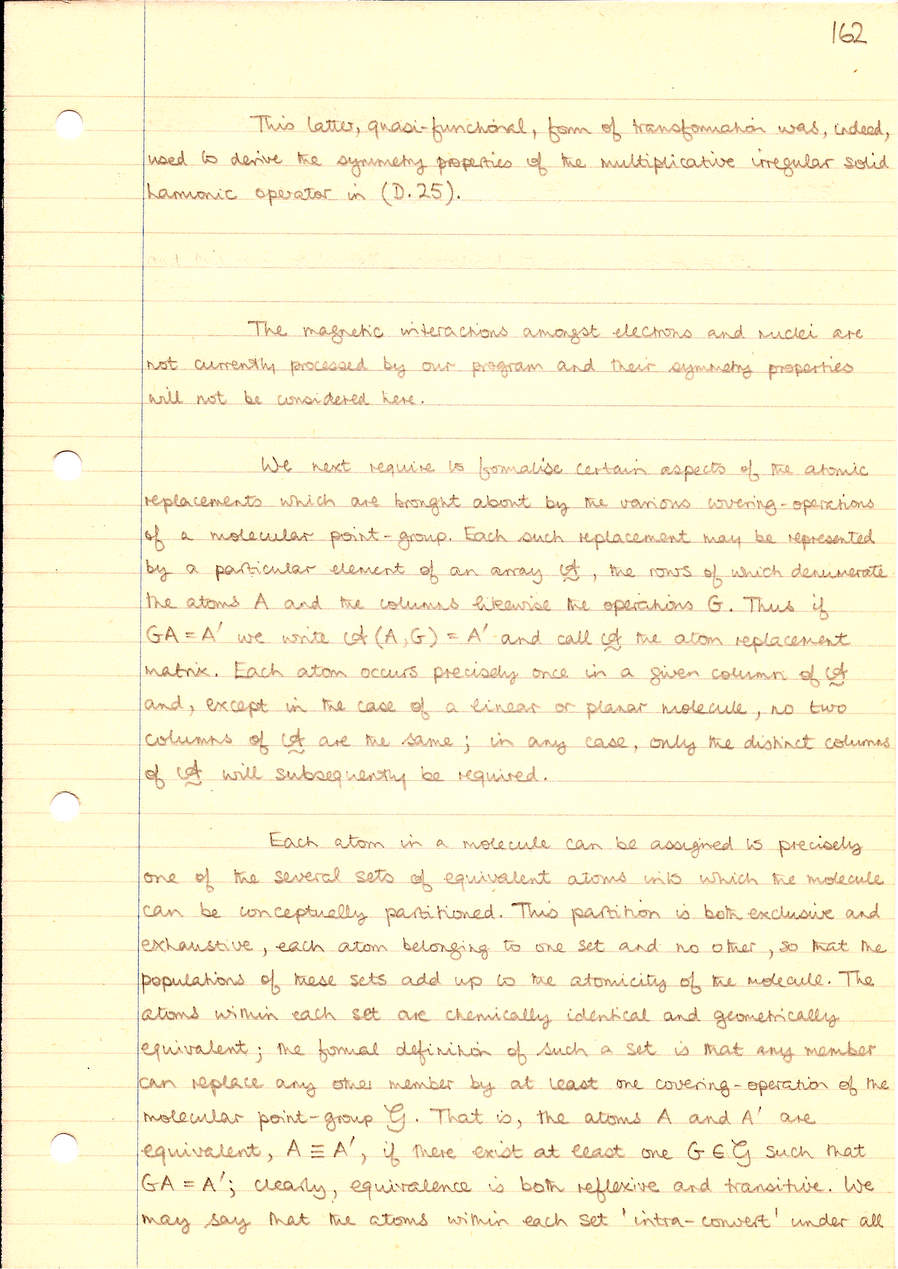 162
This latter, quasi-functional, form of transformation was, indeed,
used to derive the symmetry properties of the multiplicative irregular solid
harmonic operator in (D.25).
The magnetic interactions amongst electrons and nuclei are
not currently processed by our program and their symmetry properties
will not be considered here.
We next require to formalise certain aspects of the atomic
replacements which are brought about by the various covering-operations
of a molecular point-group. Each such replacement may be represented
by a particular element of an array 𝒜, the rows of which denumerate
the atoms A and the columns likewise the operations G. Thus if
GA = A' we write 𝒜(A,G) = A' and call 𝒜 the atom replacement
matrix. Each atom occurs precisely once in a given column of 𝒜
and, except in the case of a linear or planar molecule, no two
columns of 𝒜 are the same; in any case, only the distinct columns
of 𝒜 will subsequently be required.
Each atom in a molecule can be assigned to precisely
one of the several sets of equivalent atoms into which the molecule
can be conceptually partitioned. This partition is both exclusive and
exhaustive, each atom belonging to one set and no other, so that the
populations of these sets add up to the atomicity of the molecule. The
atoms within each set are chemically identical and geometrically
equivalent; the formal definition of such a set is that any member
can replace any other member by at least one covering-operation of the
molecular point-group 𝒢. That is, the atoms A and A' are
equivalent, A ≡ A', if there exist at least one G ∈ 𝒢 such that
GA = A'; clearly, equivalence is both reflexive and transitive. We
may say that the atoms within each set 'intra-convert' under all